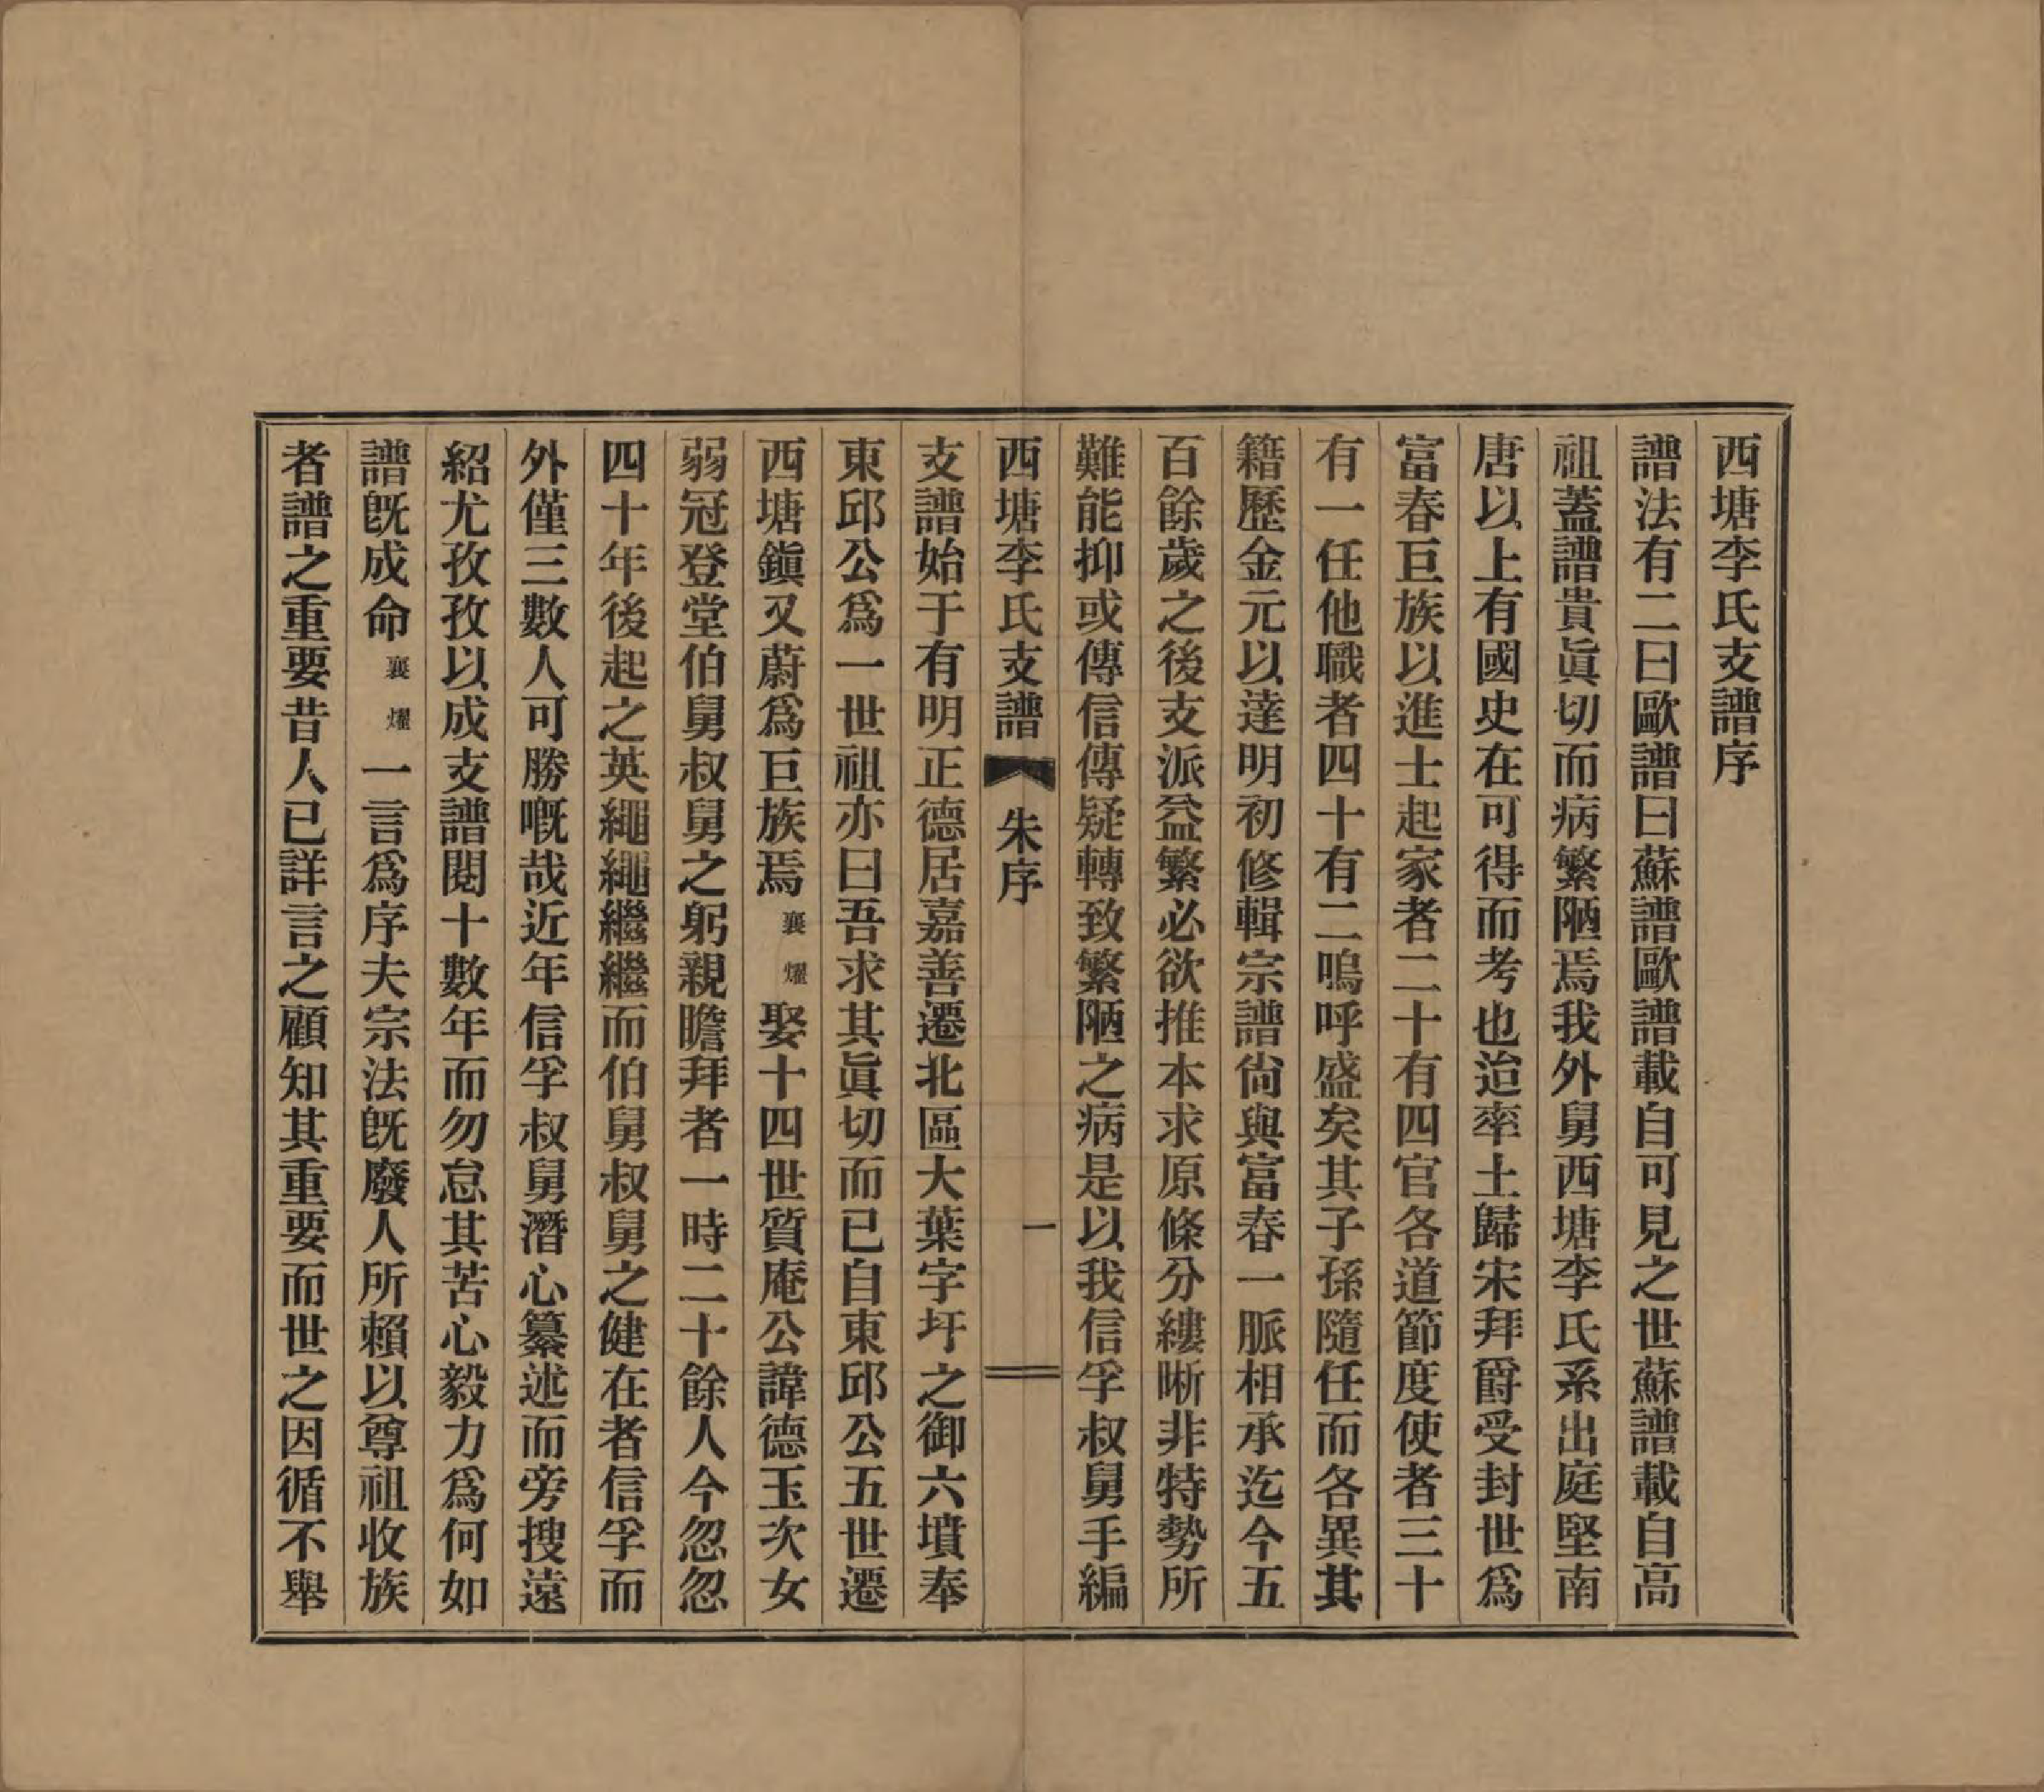 西塘李氏支譜序
譜法有二曰歐譜曰蘇譜歐譜載自可見之世蘇譜載自高
祖蓋譜貴眞切而病繁陋焉我外舅西塘李氏系出庭堅南
唐以上有國史在可得而考也迨率土歸宋拜爵受封世爲
富春巨族以進士起家者二十有四官各道節度使者三十
有一任他職者四十有二嗚呼盛矣其子孫隨任而各異其
籍歷金元以達明初修輯宗譜尙與富春一脈相承迄今五
百餘歲之後支派益繁必欲推本求原條分縷晰非特勢所
難能抑或傳信傳疑轉致繁陋之病是以我信孚叔舅手編
西塘李氏支譜 朱序 一
支譜始于有明正德居嘉善遷北區大葉字圩之御六墳奉
東邱公爲一世祖亦曰吾求其眞切而已自東邱公五世遷
西塘鎭又蔚爲巨族焉襄燿娶十四世質庵公諱德玉次女
弱冠登堂伯舅叔舅之躬親瞻拜者一時二十餘人今忽忽
四十年後起之英繩繩繼繼而伯舅叔舅之健在者信孚而
外僅三數人可勝嘅哉近年信孚叔舅潛心纂述而旁搜遠
紹尤孜孜以成支譜閱十數年而勿怠其苦心毅力爲何如
譜旣成命襄燿一言爲序夫宗法旣廢人所賴以尊祖收族
者譜之重要昔人已詳言之顧知其重要而世之因循不舉